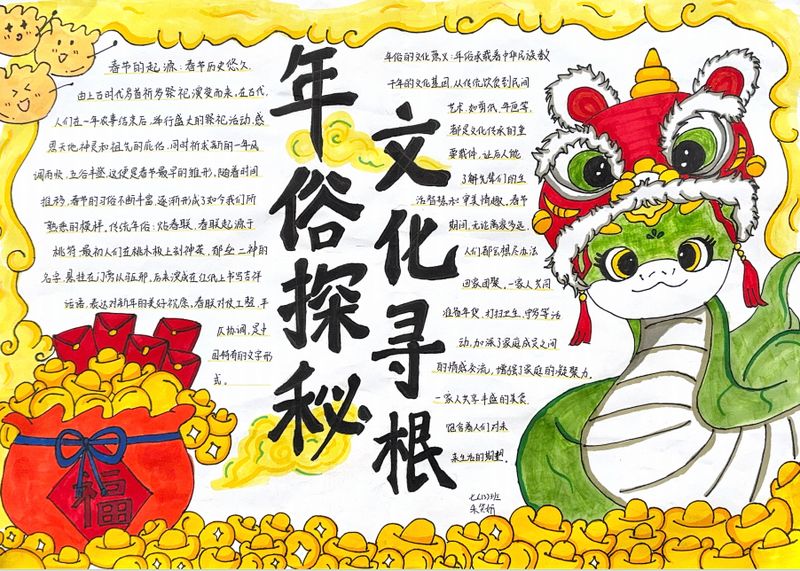 年俗探秘
文化寻根
春节的起源:春节历史悠久,
由上古时代岁首祈岁祭祀演变而来,在古代,
人们在一年农事结束后,举行盛大的祭祀活动,感
恩天地神灵和祖先的庇佑,同时祈求新的一年风
调雨顺,五谷丰登,这便是春节最早的雏形,随着时间
推移,春节的习俗不断丰富,逐渐形成了如今我们所
熟悉的模样。传统年俗:贴春联,春联起源于
桃符,最初人们在桃木板上刻神荼、郁垒二神的
名字,悬挂在门旁以驱邪,后来演成在红纸上书写吉祥
话语,表达对新年的美好祝愿。春联对仗工整,平
仄协调,是中
国特有的文字形
式。
年俗的文化意义:年俗承载着中华民族数
千年的文化基因,从传统饮食到民间
艺术,如剪纸、年画等,
都是文化传承的重
要载体,让后人能
了解先辈们的生
活智慧和审美情趣。春节
期间,无论离家多远,
人们都会想尽办法
回家团聚,一家人共同
准备年货、打扫卫生、守岁等活
动,加深了家庭成员之间
的情感交流,增强了家庭的凝聚力。
一家人共享丰盛的美食,
饱含着人们对未
来生活的期望。
福